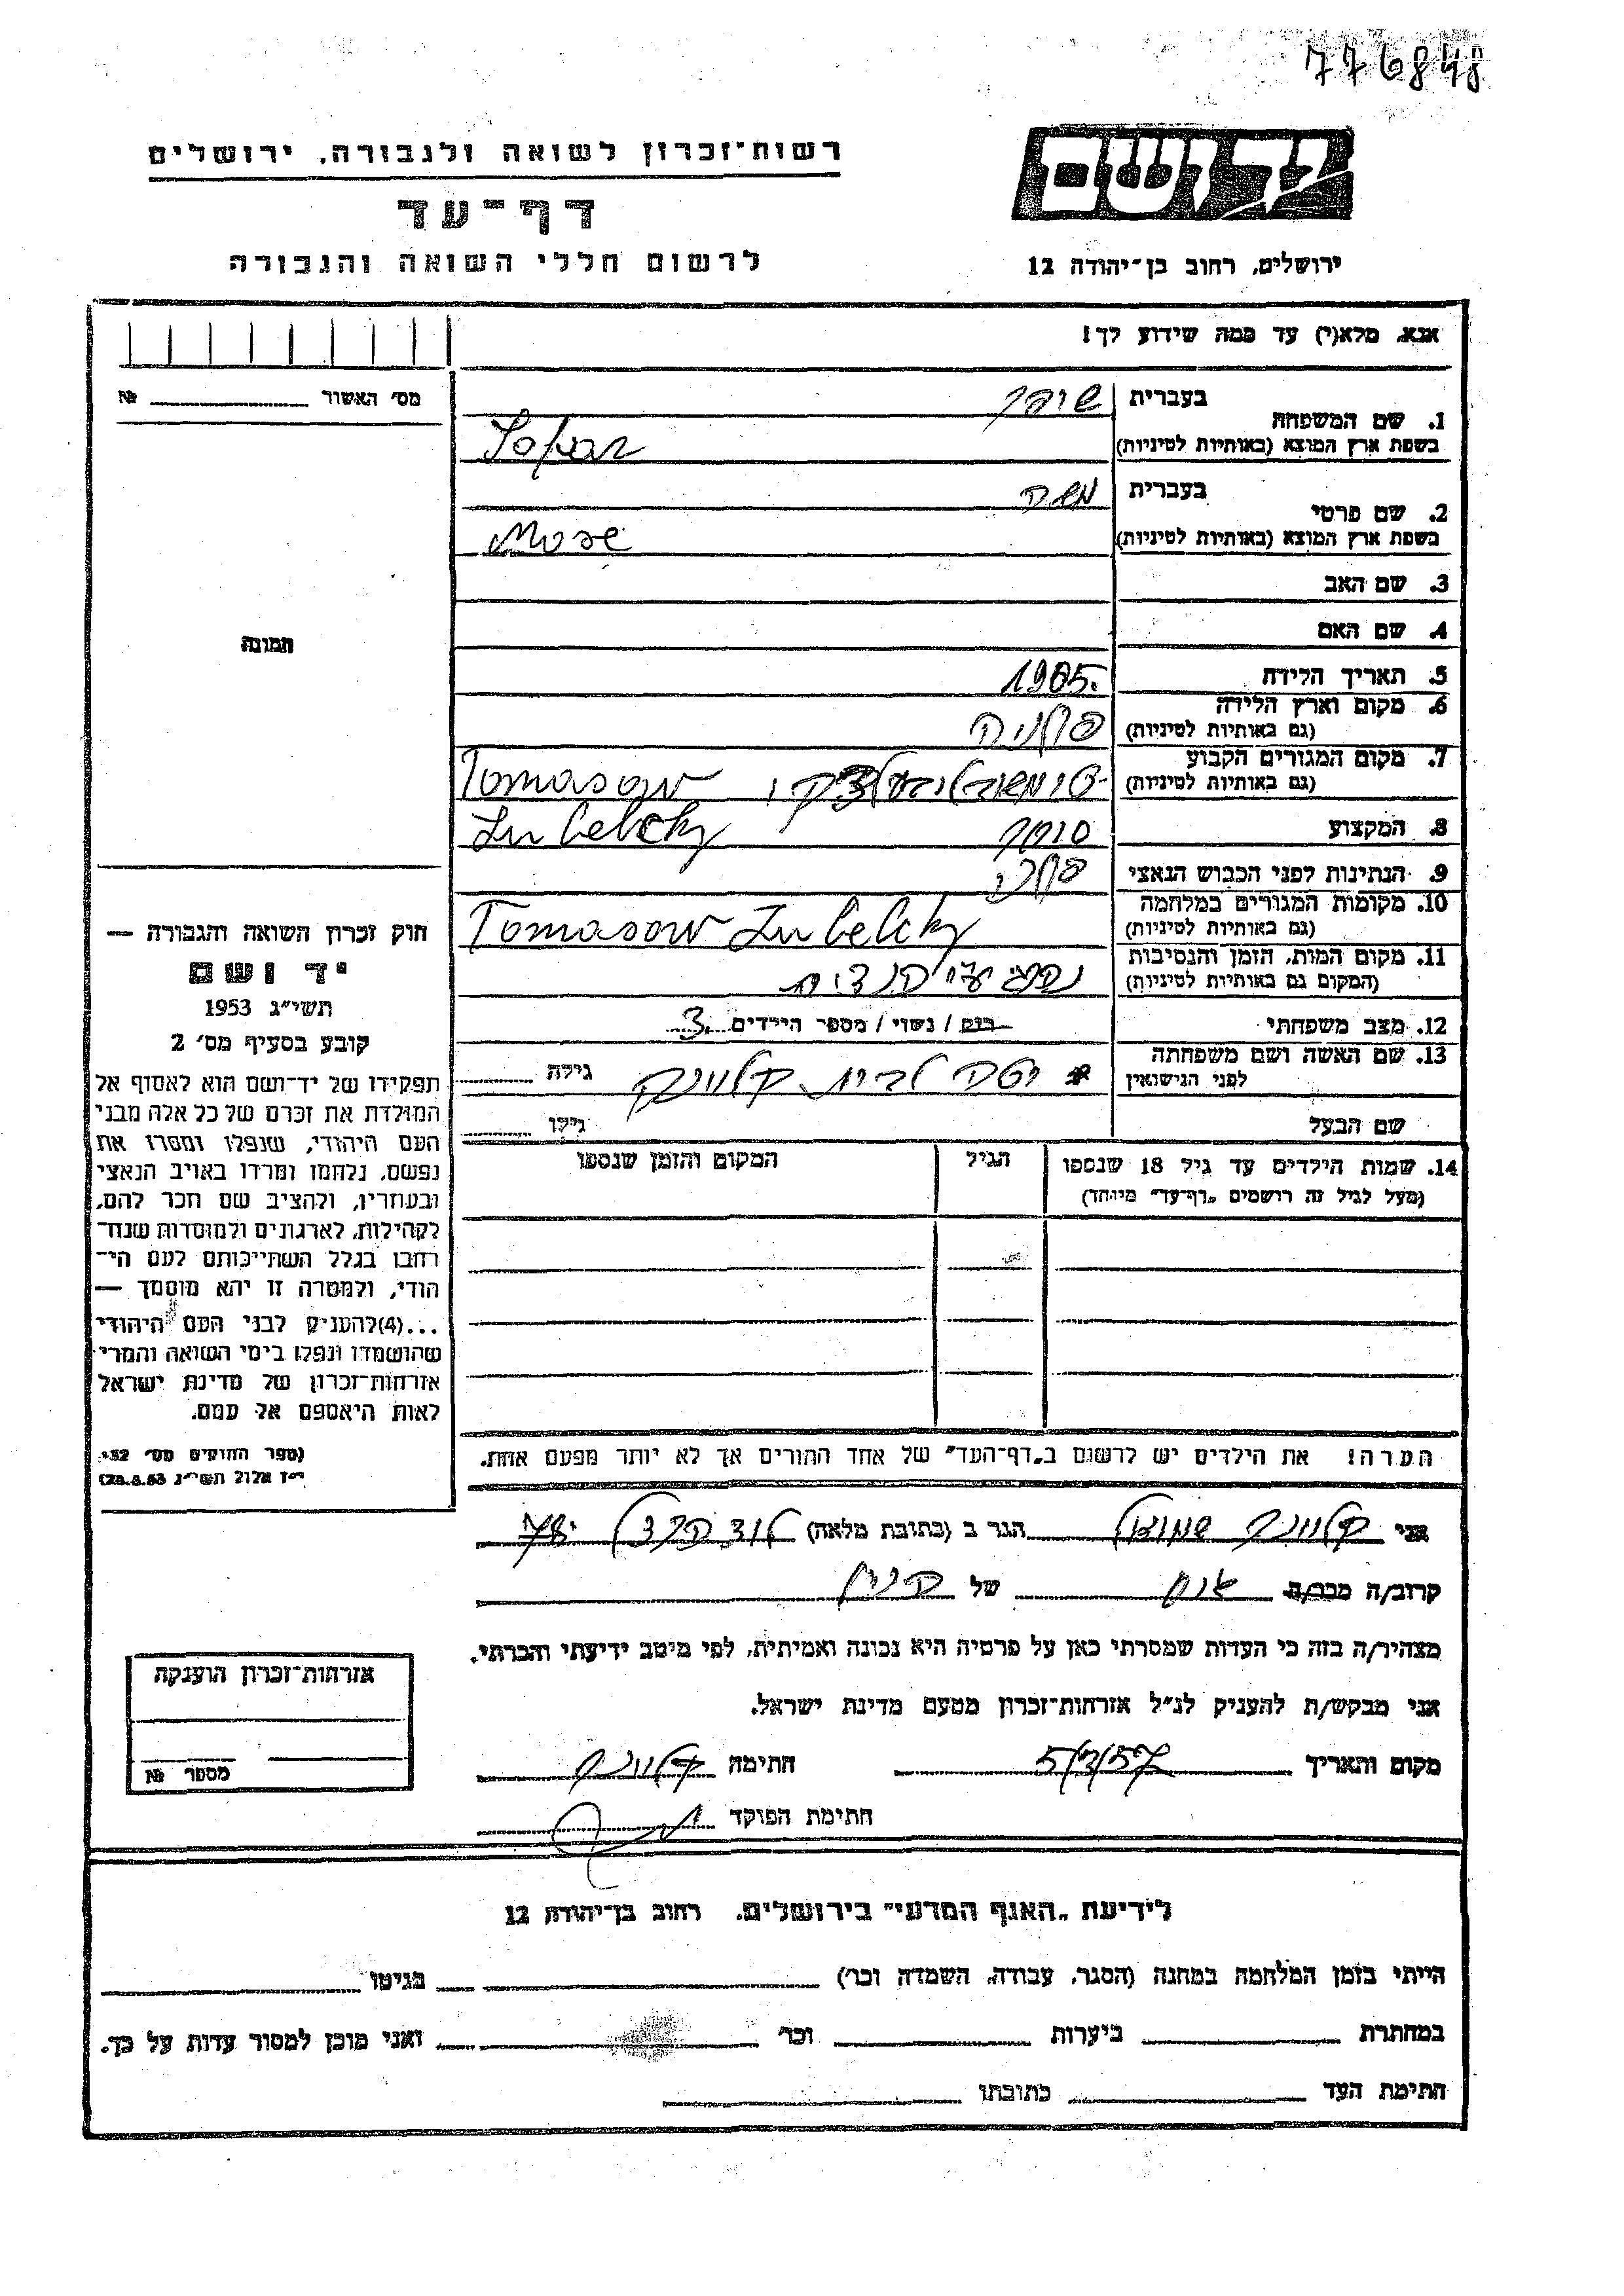 776848
רשות־זכרון לשואה ולגבורה, ירושלים
יד ושם
דף־עד
לרשום חללי השואה והגבורה
ירושלים, רחוב בן־יהודה 12
אנא, מלא(י) עד כמה שידוע לך!
מס' האשור №
1. שם המשפחה
בעברית
בשפת ארץ המוצא (באותיות לטיניות) Sofar
2. שם פרטי
בעברית משה
בשפת ארץ המוצא (באותיות לטיניות) Mose
3. שם האב
4. שם האם
תמונה
5. תאריך הלידה 1905.
6. מקום וארץ הלידה
(גם באותיות לטיניות) פולניה
7. מקום המגורים הקבוע
(גם באותיות לטיניות) Tomasow
Lubelcky
8. המקצוע סוחר
9. הנתינות לפני הכבוש הנאצי פולני
10. מקומות המגורים במלחמה
(גם באותיות לטיניות) Tomasow Lubelcky
11. מקום המות, הזמן והנסיבות
(המקום גם באותיות לטיניות)
12. מצב משפחתי רווק / נשוי / מספר הילדים 3
13. שם האשה ושם משפחתה
לפני הנישואין יטה לבית קלוינק גילה
שם הבעל גילו
14. שמות הילדים עד גיל 18 שנספו
(מעל לגיל זה רושמים „דף־עד" מיוחד)
הגיל
המקום והזמן שנספו
הערה! את הילדים יש לרשום ב„דף־העד" של אחד ההורים אך לא יותר מפעם אחת.
חוק זכרון השואה והגבורה —
יד ושם
תשי"ג 1953
קובע בסעיף מס' 2
תפקידו של יד־ושם הוא לאסוף אל
המולדת את זכרם של כל אלה מבני
העם היהודי, שנפלו ומסרו את
נפשם, נלחמו ומרדו באויב הנאצי
ובעוזריו, ולהציב שם וזכר להם,
לקהילות, לארגונים ולמוסדות שנח־
רבו בגלל השתייכותם לעם הי־
הודי, ולמטרה זו יהא מוסמך —
...(4) להעניק לבני העם היהודי
שהושמדו ונפלו בימי השואה והמרי
אזרחות־זכרון של מדינת ישראל
לאות היאספם אל עמם.
(ספר החוקים מס' 132,
י"ז אלול תשי"ג 28.8.53)
אני קלוינק שמואל הגר ב (כתובת מלאה)
קרוב/ה מכר/ה של
מצהיר/ה בזה כי העדות שמסרתי כאן על פרטיה היא נכונה ואמיתית, לפי מיטב ידיעתי והכרתי.
אני מבקש/ת להעניק לנ"ל אזרחות־זכרון מטעם מדינת ישראל.
מקום ותאריך 5/3/57 חתימה קלוינק
חתימת הפוקד
אזרחות־זכרון הוענקה
מספר №
לידיעת „האגף המדעי" בירושלים, רחוב בן־יהודה 12
הייתי בזמן המלחמה במחנה (הסגר, עבודה, השמדה וכו') בגיטו
במחתרת ביערות וכו' ואני מוכן למסור עדות על כך.
חתימת העד כתובתו